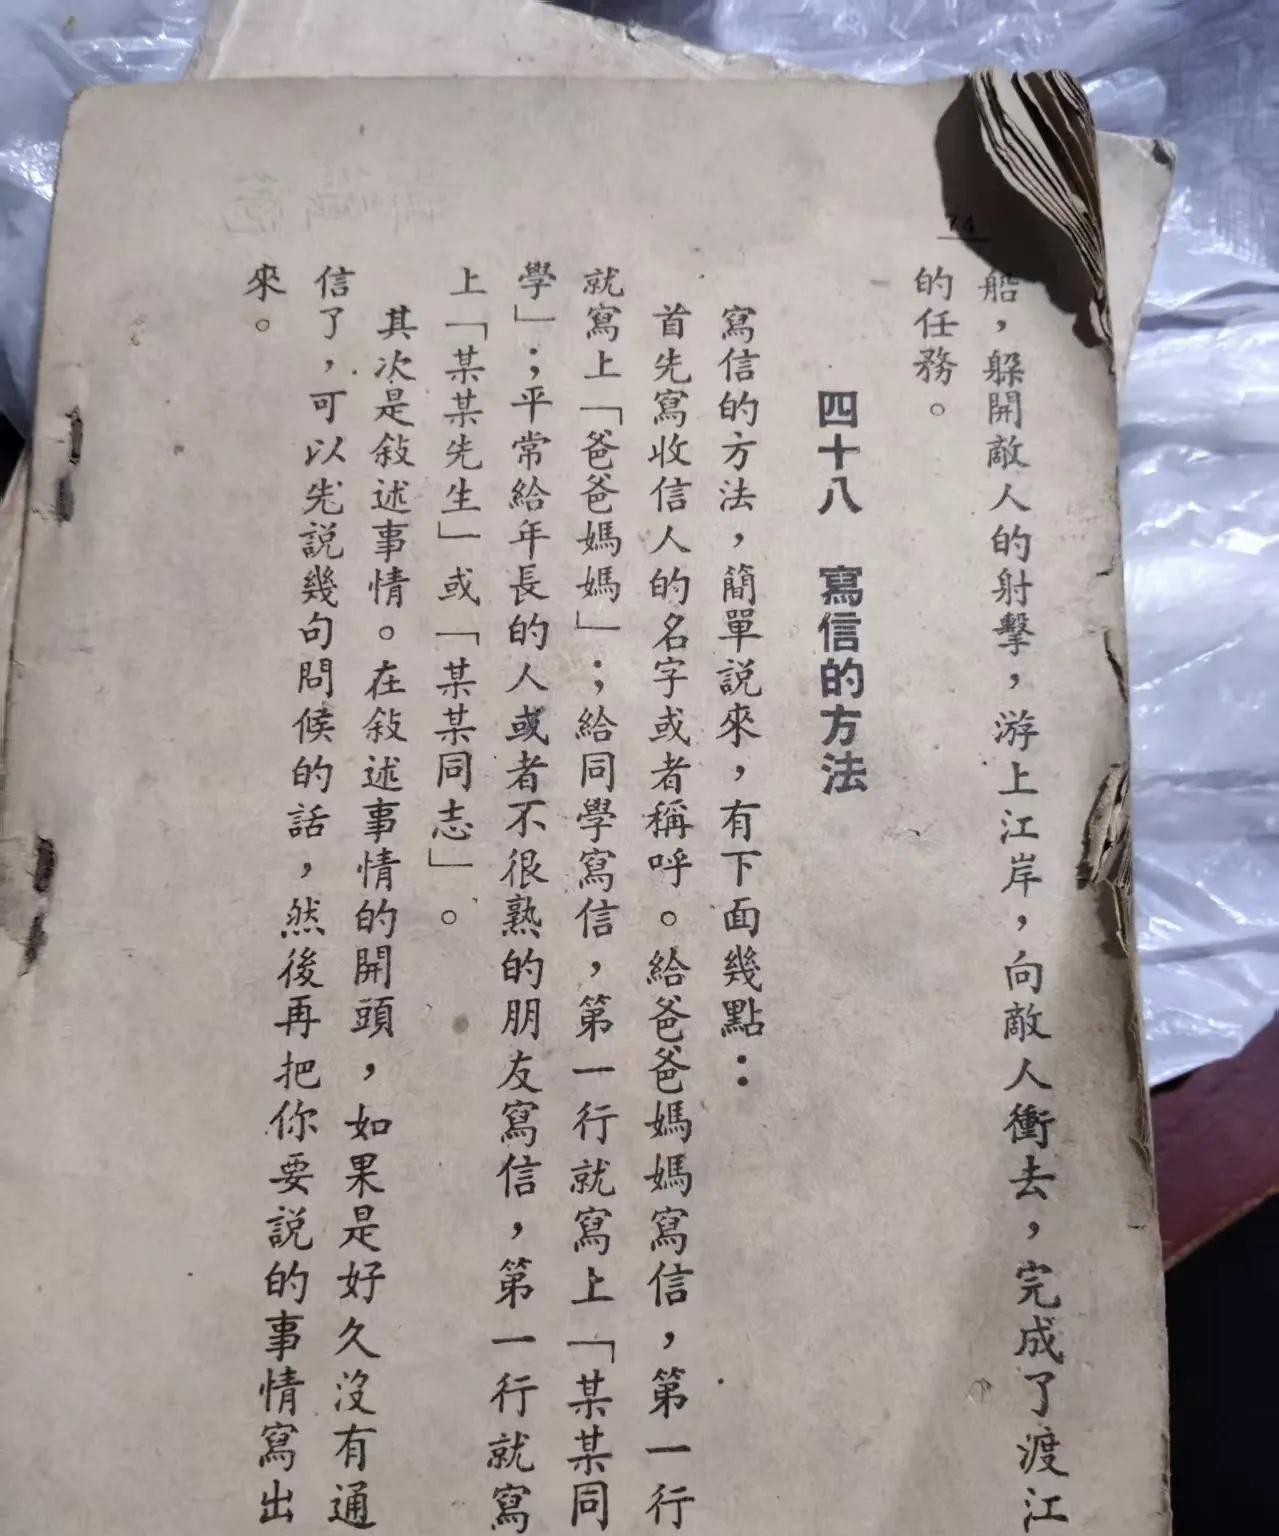 74
船，躲開敵人的射擊，游上江岸，向敵人衝去，完成了渡江
的任務。
四十八　寫信的方法
寫信的方法，簡單說來，有下面幾點：
首先寫收信人的名字或者稱呼。給爸爸媽媽寫信，第一行
就寫上「爸爸媽媽」；給同學寫信，第一行就寫上「某某同
學」；平常給年長的人或者不很熟的朋友寫信，第一行就寫
上「某某先生」或「某某同志」。
其次是敍述事情。在敍述事情的開頭，如果是好久沒有通
信了，可以先說幾句問候的話，然後再把你要說的事情寫出
來。